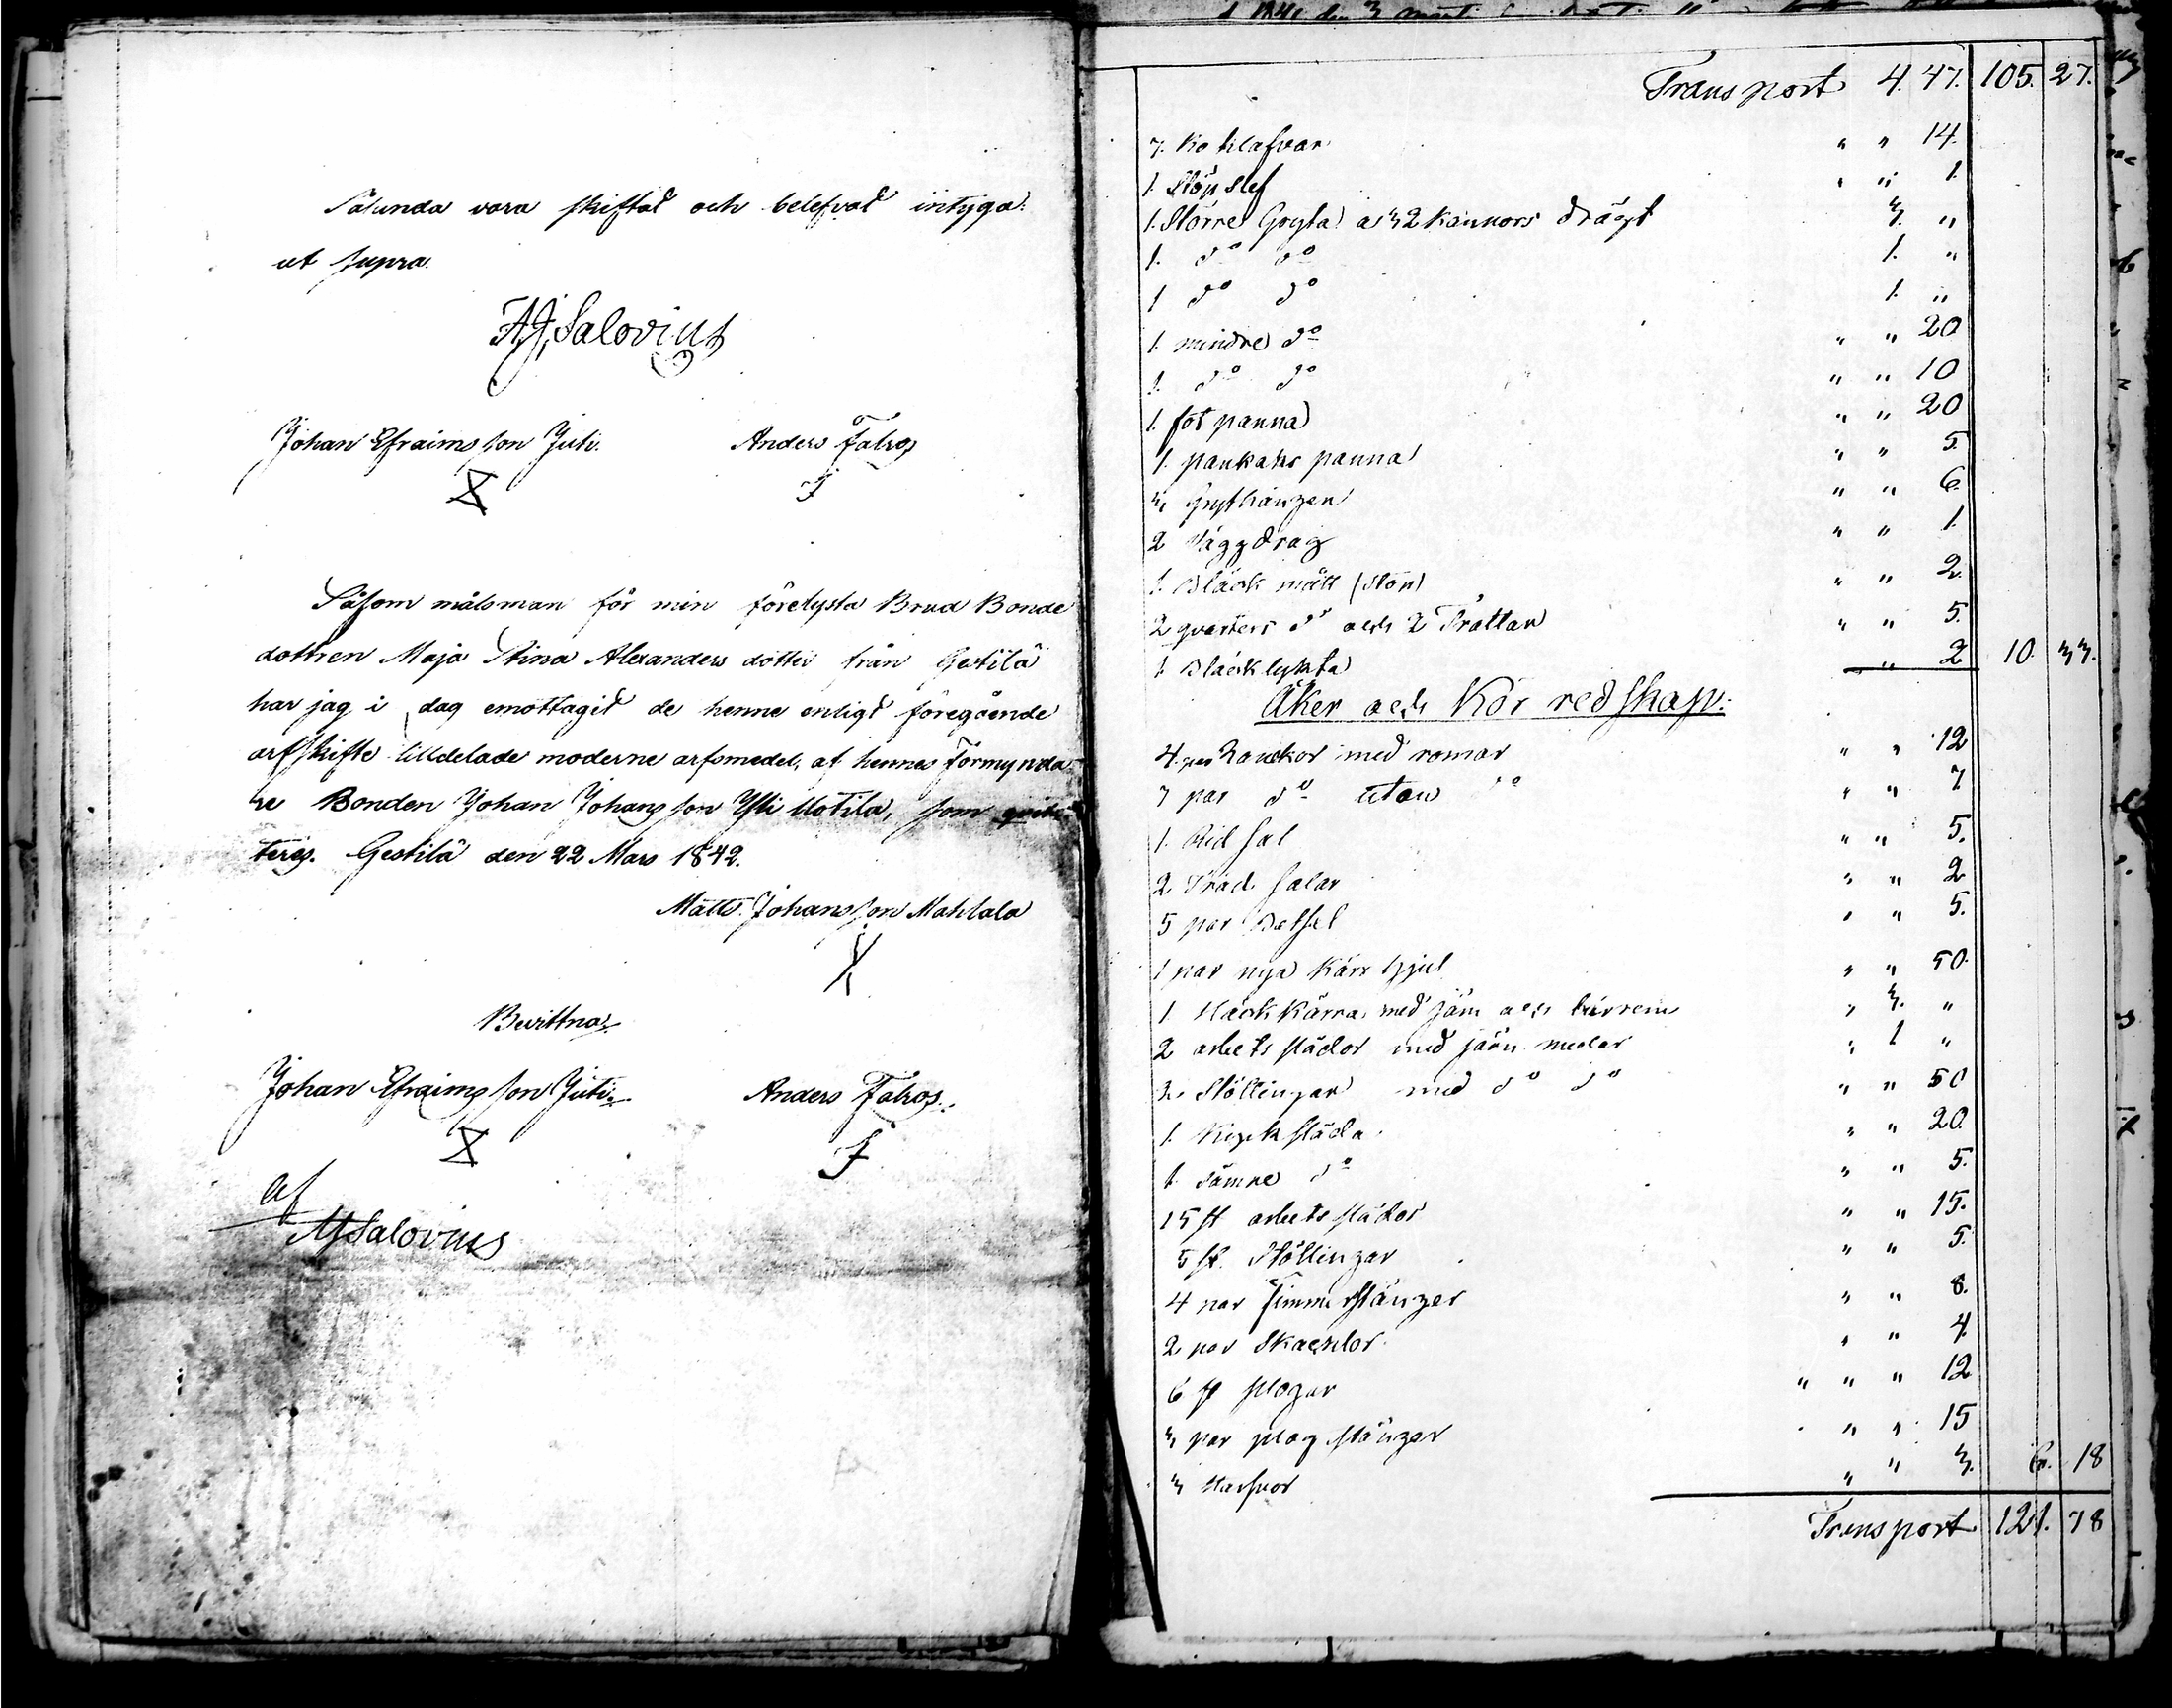 Sålunda vara skiftad och belefvad intyga.
ut supra.
A J Salovius
Johan Efraimsson Juti.
Anders Falros
Såsom målsman för min förelysta Brud Bonde
dottren Maja Stina Alexanders dotter från Gestilä
har jag i dag emottagit de henne enligt föregående
arfskifte tilldelade moderne arfsmedel, af hennes Förmynda
re Bonden Johan Johansson Yli Uotila, som qvit-
teras. Gestilä den 22 Mars 1842.
Matts Johansson Mahlala
X
Bevittna
Johan Efraimsson Juti.
Anders Falros.
Af
AJSalovius
Transport 4. 47. 105. 27.
7. " " 14.
1. Slöpslef " " 1.
1. Större Gryta a 32 Kannors drägt 3. "
1. do do 1. "
1 do do 1. "
1. mindre do " " 20
1. do do " " 10
1. fot panna " " 20
1. pankaks panna " " 5.
3 Grythängen " " 6.
2 Väggdrag " " 1.
1. Bläck mått (stop) " " 2.
2 qvarters do och 2 Trattar " " 5.
1. Bläck lykta " 2 10. 33.
Åker och Kör redskap.
4. par Ranckor med romar " " 12
7 par do utan do " " 7
1. Rid sal " " 5.
2 Träd salar " " 2
5 par Betsel " " 5.
1 par nya Kärr hjul " " 50.
1 Häck Kärra med järn och " 3. "
2 arbets slädor med järn medar " 1 "
3. Stöttingar med do do " " 50
1. Kyrk släda " " 20.
1. sämre do " " 5.
15 st arbets slädor " " 15.
5 st. Stöttingar " " 5.
4 par Timmerstänger " " 8.
2 par Skacklor " " 4.
6 st plogar " " " 12
3 par plog stänger " " 15
3 Harfvor " " 3. 6. 18
Transport 121. 78